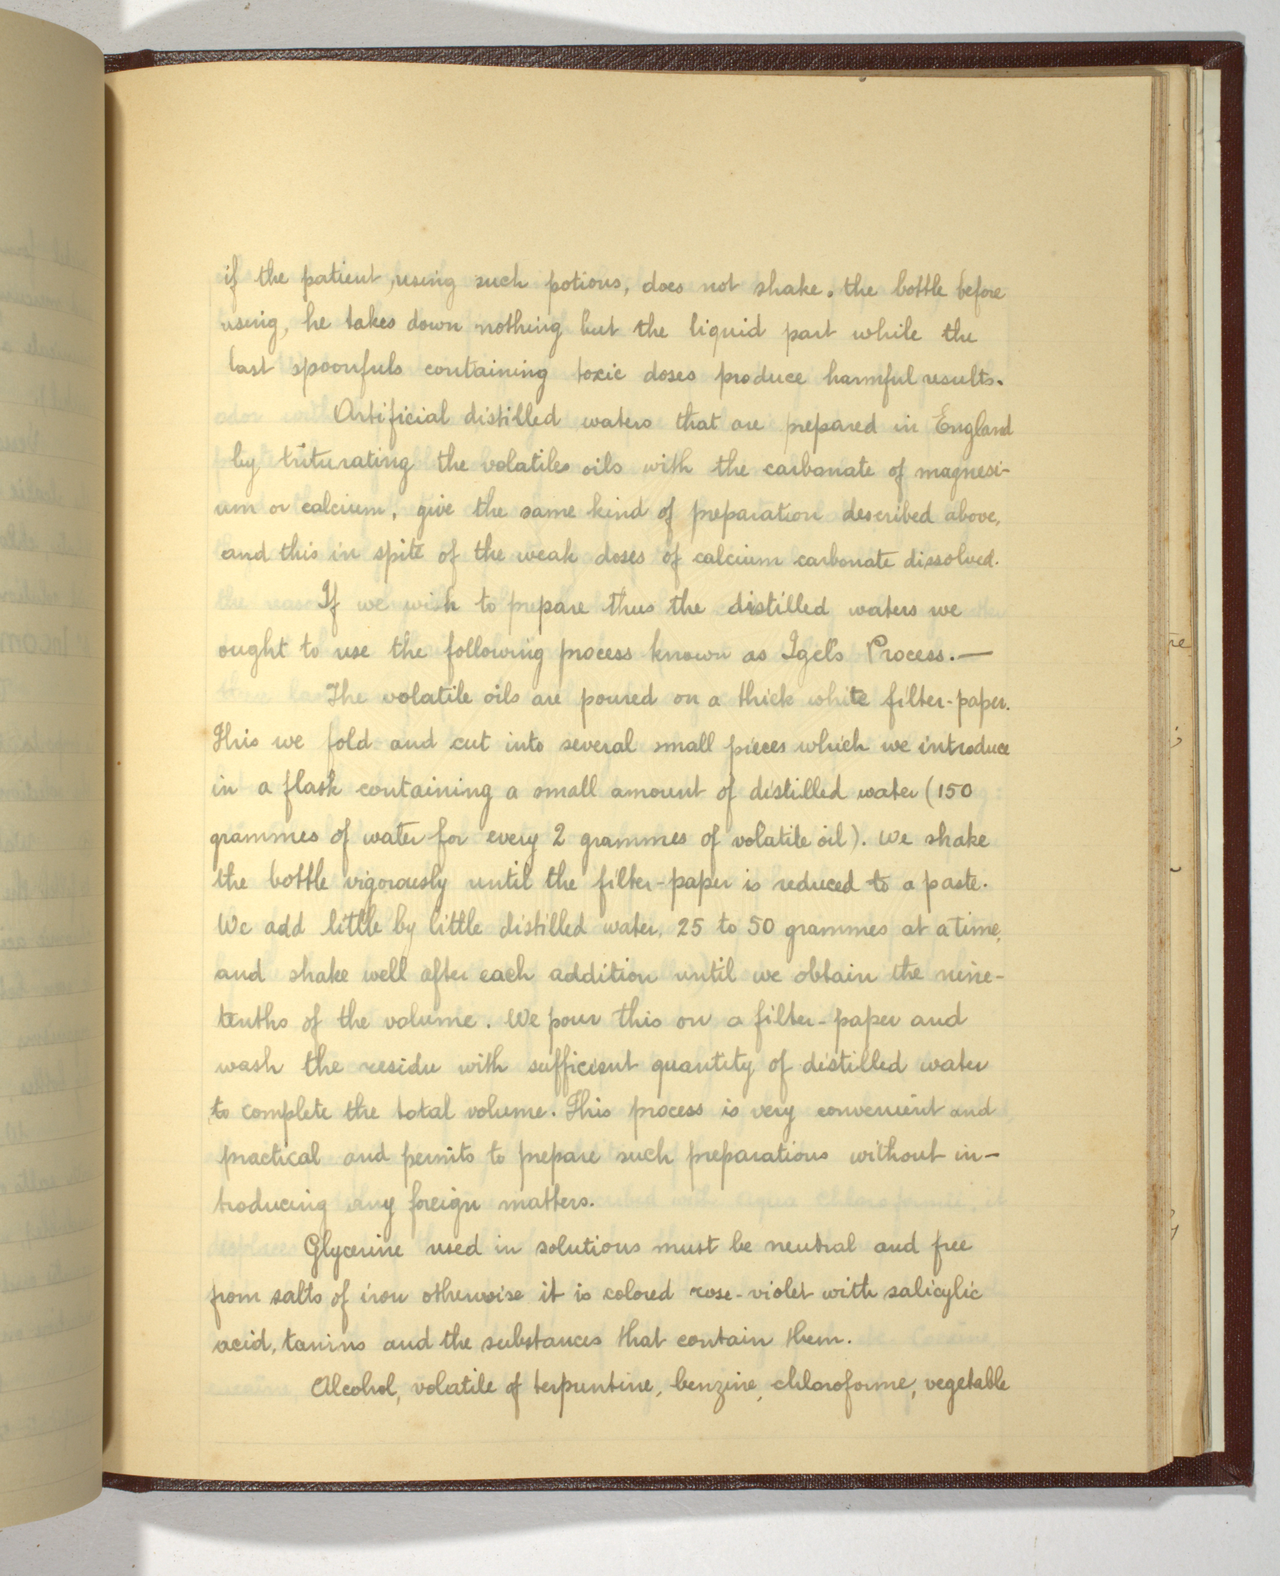 if the patient, using such potions, does not shake. the bottle before
using, he takes down nothing but the liquid part while the
last spoonfuls containing toxic doses produce harmful results.
Artificial distilled waters that are prepared in England
by triturating the volatiles oils with the carbonate of magnesi-
um or calcium, give the same kind of preparation described above,
and this in spite of the weak doses of calcium carbonate dissolved.
If we wish to prepare thus the distilled waters we
ought to use the following process known as Igel's Process.—
The volatile oils are poured on a thick white filter-paper.
This we fold and cut into several small pieces which we introduce
in a flask containing a small amount of distilled water (150
grammes of water for every 2 grammes of volatile oil). We shake
the bottle vigorously until the filter-paper is reduced to a paste.
We add little by little distilled water, 25 to 50 grammes at a time,
and shake well after each addition until we obtain the nine-
tenths of the volume. We pour this on a filter-paper and
wash the residu with sufficient quantity of distilled water
to complete the total volume. This process is very convenient and
practical and permits to prepare such preparations without in-
troducing any foreign matters.
Glycerine used in solutions must be neutral and free
from salts of iron otherwise it is colored rose-violet with salicylic
acid, tanins and the substances that contain them.
Alcohol, volatile of terpuntine, benzine, chloroforme, vegetable